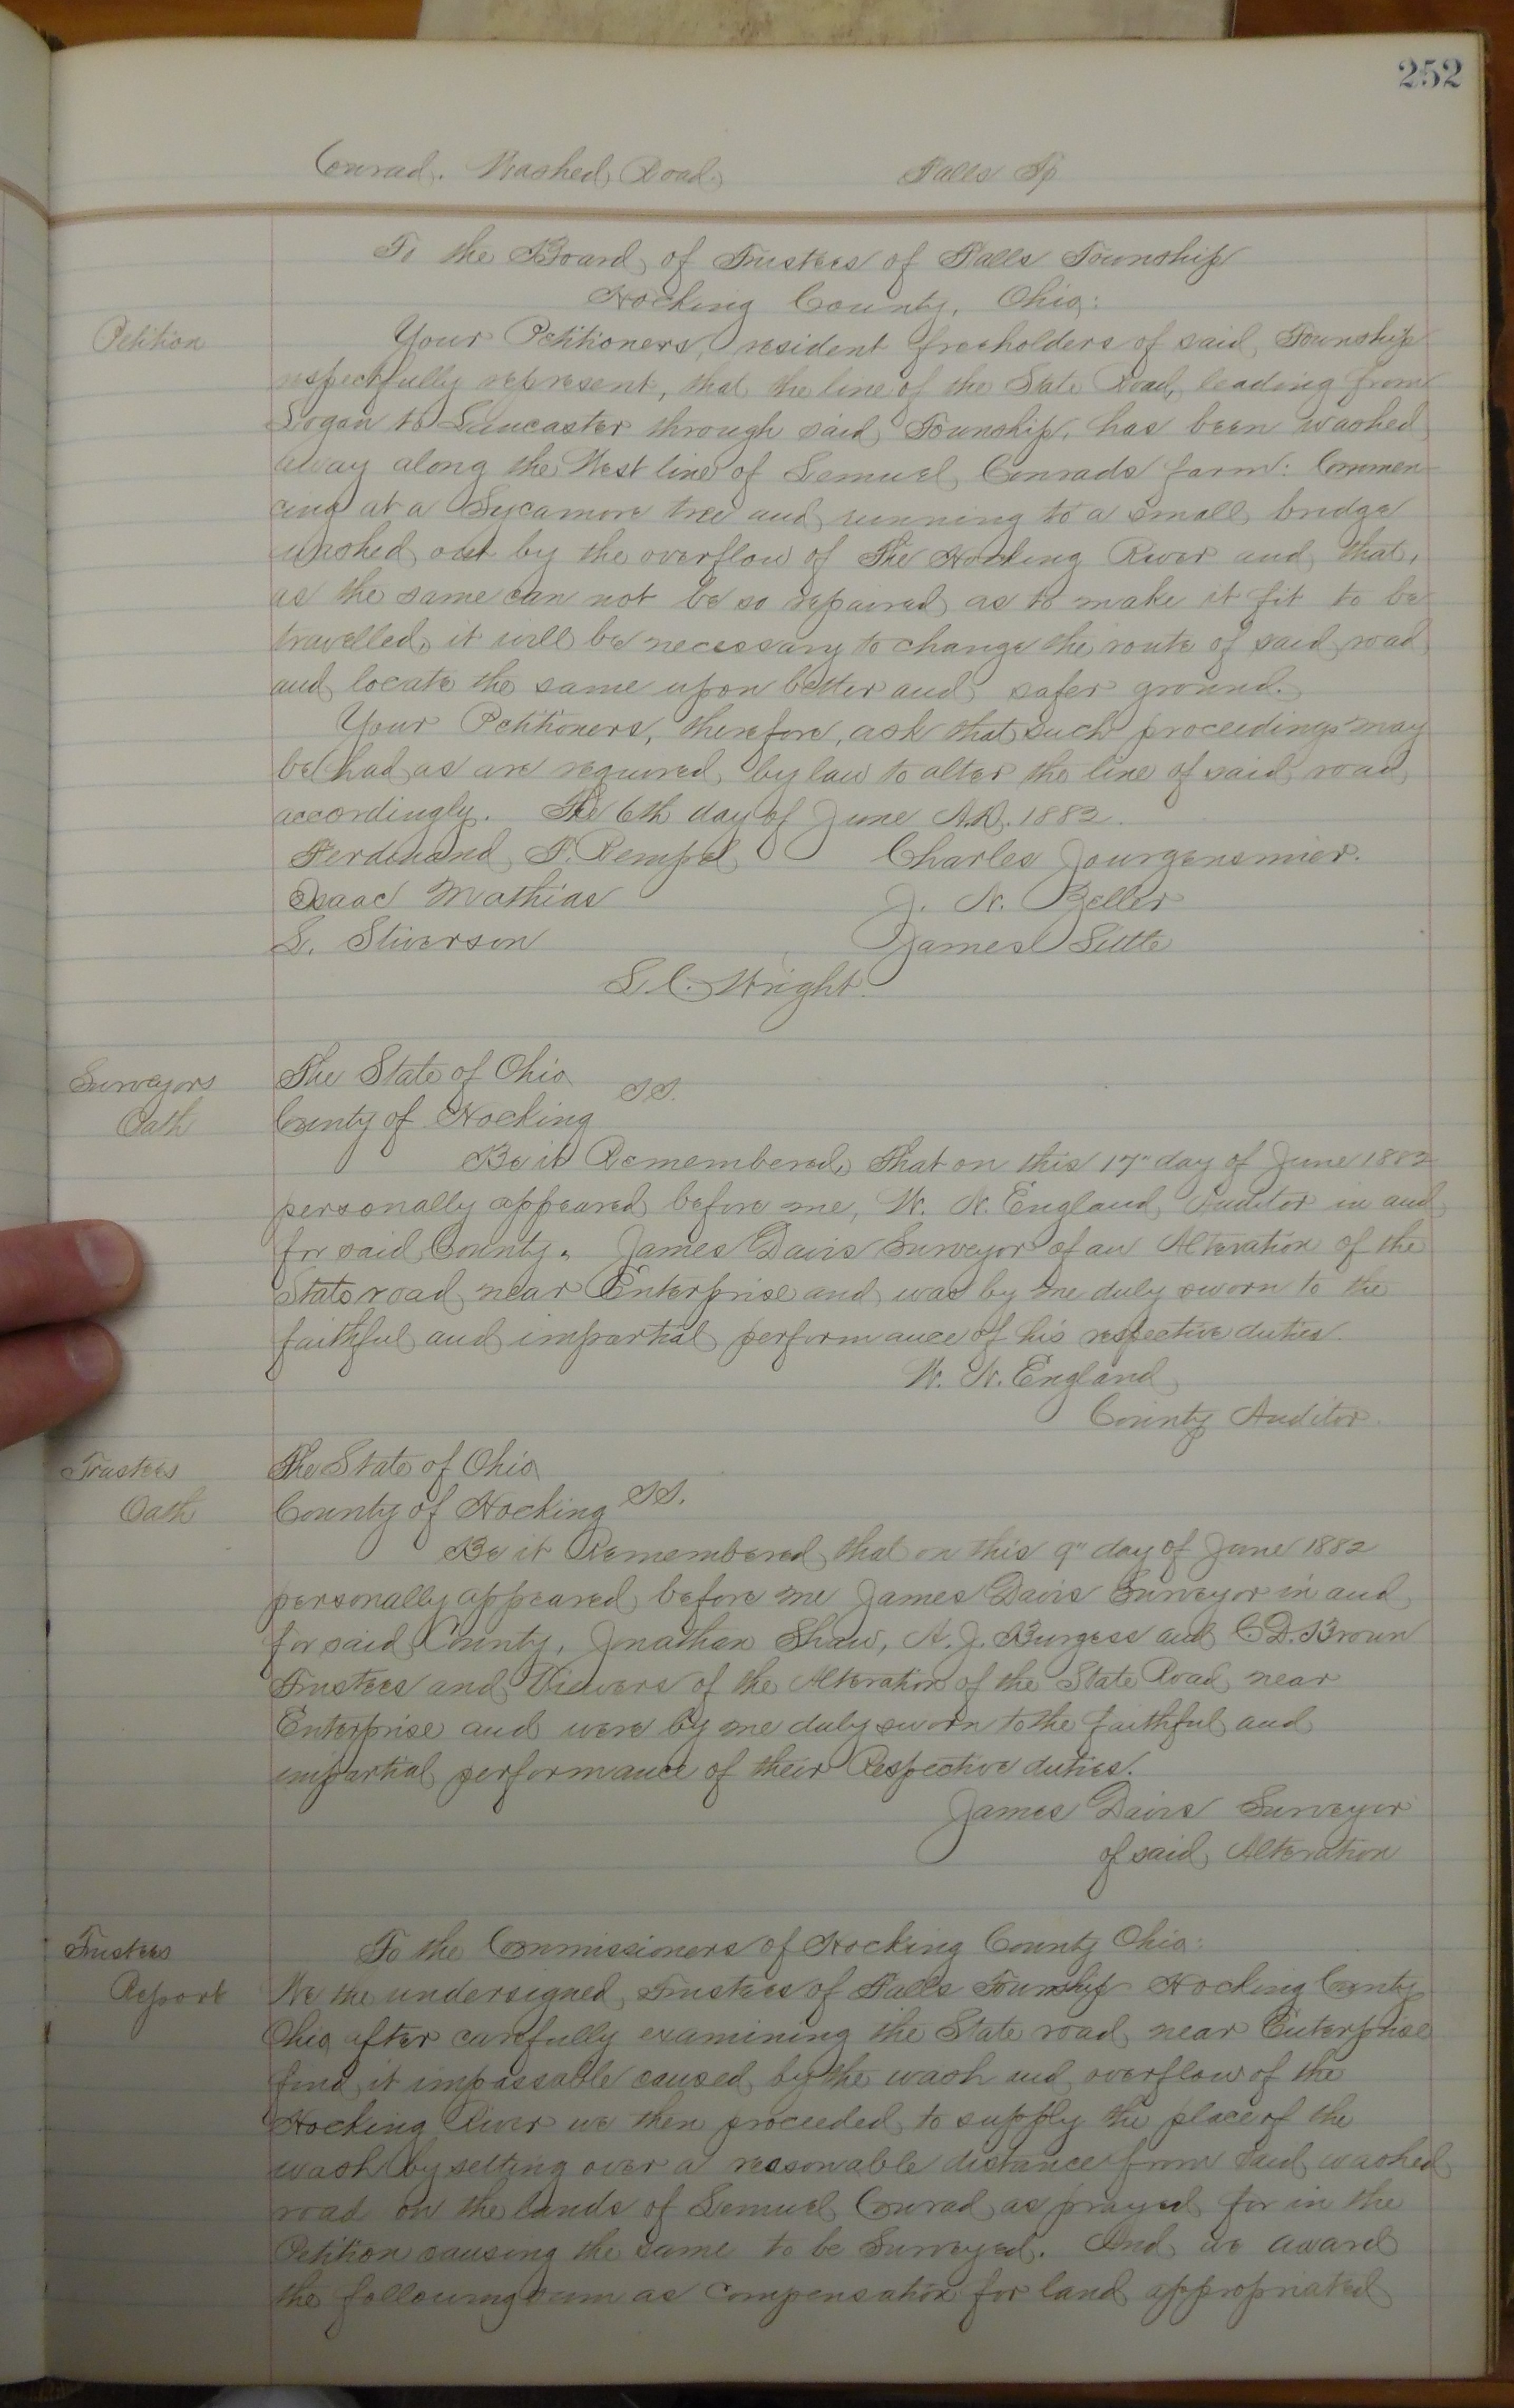 252
Conrad. Washed Road. Falls Tp
To the Board of Trustees of Falls Township
Hocking County, Ohio:
Petition
Your Petitioners, resident freeholders of said Township
respectfully represent, that the line of the State Road, leading from
Logan to Lancaster through said Township, has been washed
away along the West line of Lemuel Conrads farm: Commen-
cing at a Sycamore tree and running to a small bridge
washed out by the overflow of The Hocking River and that,
as the same can not be so repaired as to make it fit to be
travelled, it will be necessary to change the route of said road
and locate the same upon better and safer ground.
Your Petitioners, therefore, ask that such proceedings may
be had as are required by law to alter the line of said road,
accordingly. The 6th day of June A.D. 1882.
Ferdinand F. Rempel Charles Jourgensmier.
Isaac Mathias J. N. Zeller
L. Stiverson James Sutte
L. C. Wright.
Surveyors
Oath
The State of Ohio
County of Hocking SS.
Be it Remembered, That on this 17" day of June 1882
personally appeared before me, W. N. England, Auditor in and
for said County, James Davis Surveyor of an Alteration of the
State road near Enterprise and was by me duly sworn to the
faithful and impartial performance of his respective duties.
W. N. England
County Auditor.
Trustees
Oath
The State of Ohio
County of Hocking SS.
Be it Remembered that on this 9" day of June 1882
personally appeared before me James Davis Surveyor in and
for said County, Jnathan Shaw, A. J. Burgess and C. D. Brown
Trustees and Viewers of the Alteration of the State Road near
Enterprise and were by me duly sworn to the faithful and
impartial performance of their Respective duties.
James Davis Surveyor
of said Alteration
Trustees
Report
To the Commissioners of Hocking County Ohio:
We the undersigned, Trustees of Falls Township Hocking County
Ohio after carefully examining the State road near Enterprise
find it impassable caused by the wash and overflow of the
Hocking River we then proceeded to supply the place of the
wash by setting over a reasonable distance from said washed
road on the lands of Lemuel Conrad as prayed for in the
Petition causing the same to be Surveyed. And we award
the following sum as compensation for land appropriated